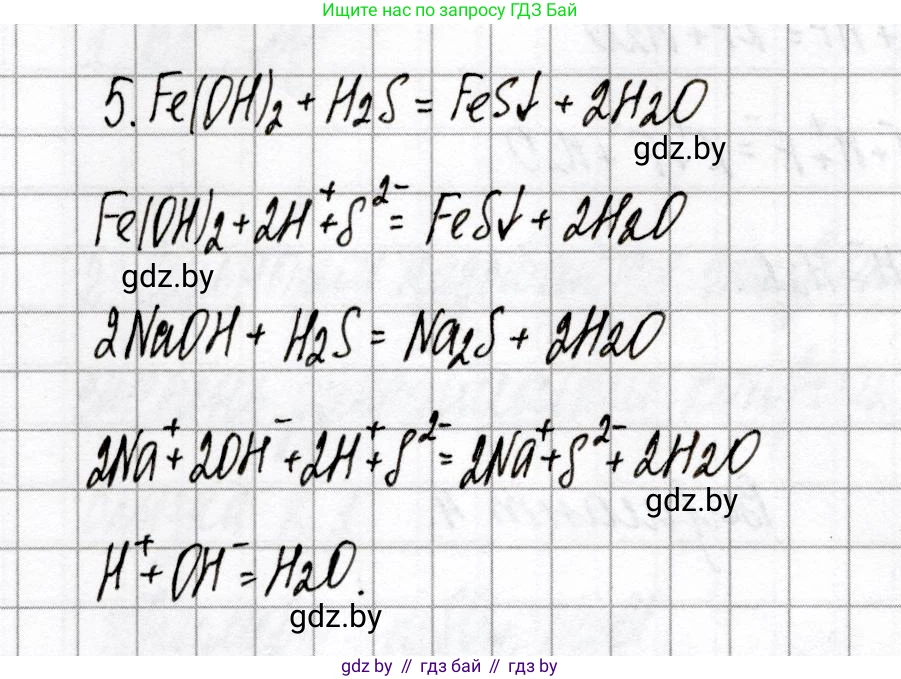 Ищите нас по запросу ГДЗ Бай
5. Fe(OH)₂ + H₂S = FeS↓ + 2H₂O
gdz.by
Fe(OH)₂ + 2H⁺ + S²⁻ = FeS↓ + 2H₂O
gdz.by
2NaOH + H₂S = Na₂S + 2H₂O
2Na⁺ + 2OH⁻ + 2H⁺ + S²⁻ = 2Na⁺ + S²⁻ + 2H₂O
gdz.by
H⁺ + OH⁻ = H₂O.
gdz.by
gdz.by // гдз бай // gdz by